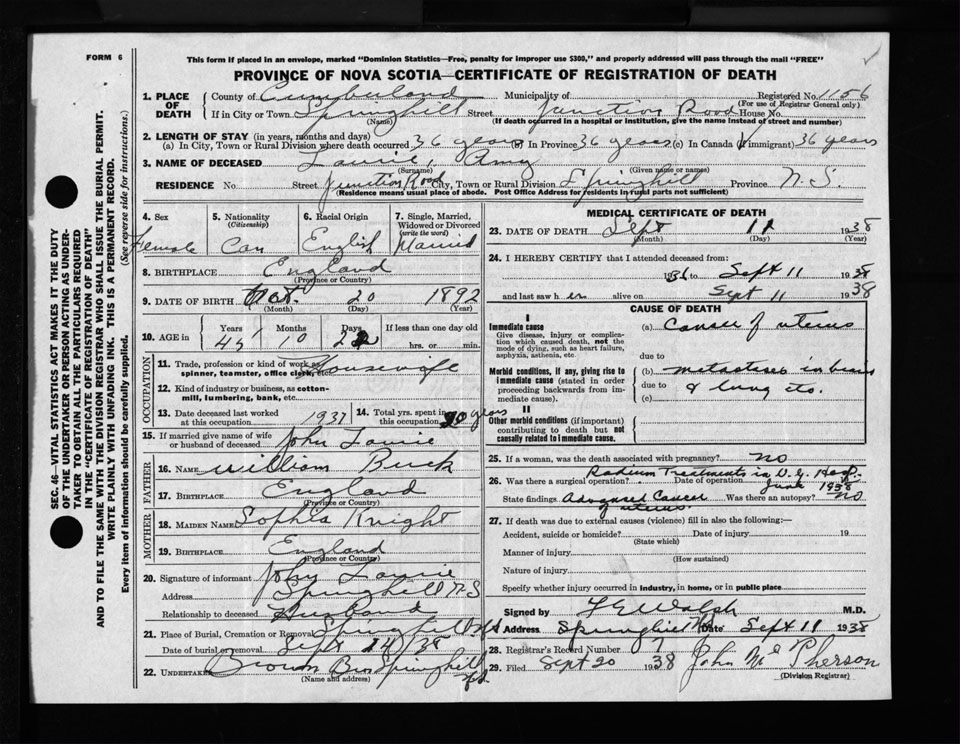 FORM 6
This form if placed in an envelope, marked "Dominion Statistics—Free, penalty for improper use $300," and properly addressed will pass through the mail "FREE"
PROVINCE OF NOVA SCOTIA—CERTIFICATE OF REGISTRATION OF DEATH
1. PLACE OF DEATH County of Cumberland Municipality of Registered No. 1156
(For use of Registrar General only)
If in City or Town Springhill Street Junction Road House No.
(Name) (If death occurred in a hospital or institution, give the name instead of street and number)
2. LENGTH OF STAY (in years, months and days)
(a) In City, Town or Rural Division where death occurred 36 years (b) In Province 36 years (c) In Canada (if immigrant) 36 years
3. NAME OF DECEASED Laurie, Amy
(Surname) (Given name or names)
RESIDENCE No. Street Junction Road City, Town or Rural Division Springhill Province N.S.
(Residence means usual place of abode. Post Office Address for residents in rural parts not sufficient)
4. Sex Female
5. Nationality (Citizenship) Can
6. Racial Origin English
7. Single, Married, Widowed or Divorced (write the word) Married
8. BIRTHPLACE England
(Province or Country)
9. DATE OF BIRTH 20 1892
(Month) (Day) (Year)
10. AGE in Years 45 Months 10 Days 22 If less than one day old hrs. or min.
OCCUPATION
11. Trade, profession or kind of work as spinner, teamster, office clerk, etc. Housewife
12. Kind of industry or business, as cotton-mill, lumbering, bank, etc.
13. Date deceased last worked at this occupation 1937
14. Total yrs. spent in this occupation 20 years
15. If married give name of wife or husband of deceased John Laurie
FATHER
16. NAME William Buck
17. BIRTHPLACE England
(Province or Country)
MOTHER
18. MAIDEN NAME Sophia Knight
19. BIRTHPLACE England
(Province or Country)
20. Signature of informant John Laurie
Address Springhill N.S
Relationship to deceased Husband
21. Place of Burial, Cremation or Removal Springhill
Date of burial or removal Sept 14/38
22. UNDERTAKER Brown Bros Springhill
(Name and address)
MEDICAL CERTIFICATE OF DEATH
23. DATE OF DEATH Sept 11 1938
(Month) (Day) (Year)
24. I HEREBY CERTIFY that I attended deceased from:
1936 to Sept 11 1938
and last saw her alive on Sept 11 1938
CAUSE OF DEATH
I
Immediate cause
Give disease, injury or complication which caused death, not the mode of dying, such as heart failure, asphyxia, asthenia, etc.
(a) Cancer of uterus
due to
Morbid conditions, if any, giving rise to immediate cause (stated in order proceeding backwards from immediate).
(b) metastases in
due to & lung etc.
(c)
II
Other morbid conditions (if important) contributing to death but not causally related to immediate cause.
25. If a woman, was the death associated with pregnancy? no
Radium Treatments in V.G. Hosp.
26. Was there a surgical operation? Date of operation June 1938
State findings Advanced Cancer of uterus Was there an autopsy? no
27. If death was due to external causes (violence) fill in also the following:—
Accident, suicide or homicide? Date of injury 19
(State which)
Manner of injury
(How sustained)
Nature of injury
Specify whether injury occurred in industry, in home, or in public place
Signed by F E Walsh M.D.
Address Springhill Date Sept 11 1938
28. Registrar's Record Number
29. Filed Sept 20 1938 John McPherson
(Division Registrar)
SEC. 46—VITAL STATISTICS ACT MAKES IT THE DUTY
OF THE UNDERTAKER OR PERSON ACTING AS UNDER-
TAKER TO OBTAIN ALL THE PARTICULARS REQUIRED
IN THE "CERTIFICATE OF REGISTRATION OF DEATH"
AND TO FILE THE SAME WITH THE DIVISION REGISTRAR WHO SHALL ISSUE THE BURIAL PERMIT.
WRITE PLAINLY WITH UNFADING INK. THIS IS A PERMANENT RECORD.
Every item of information should be carefully supplied. (See reverse side for instructions.)